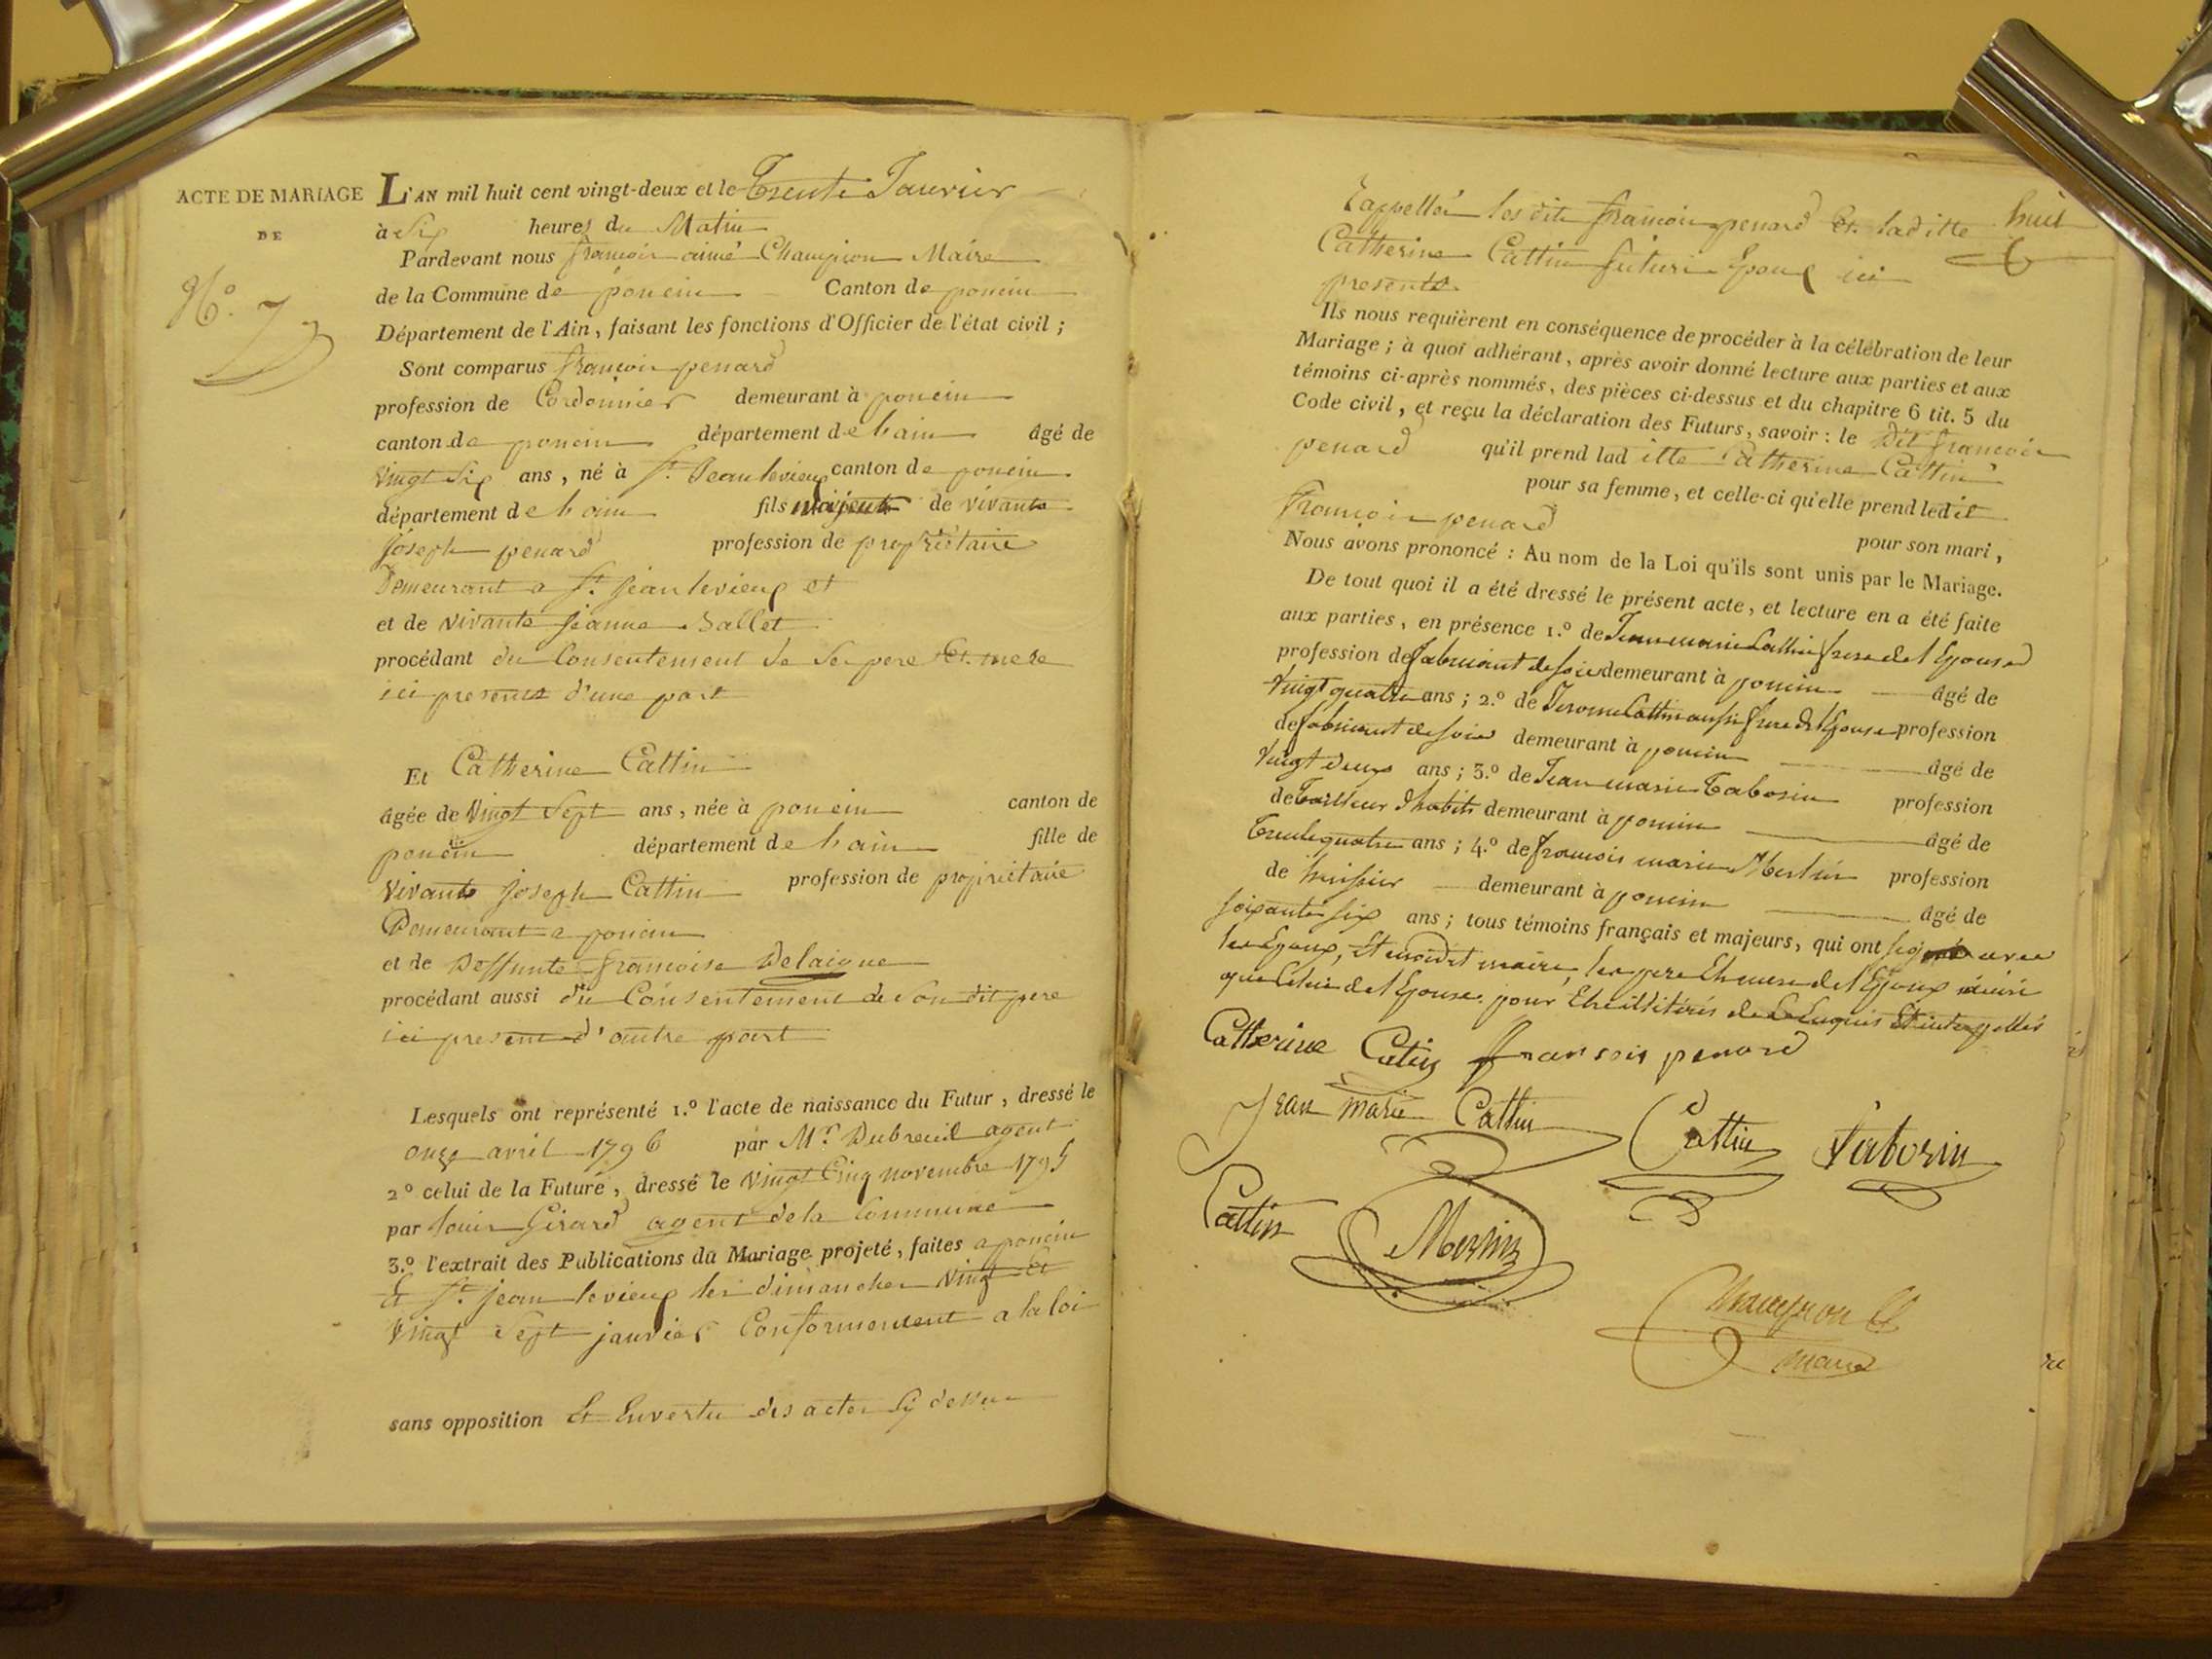 ACTE DE MARIAGE
DE
N.° 7
L'AN mil huit cent vingt-deux et le Trente Janvier
à Six heures du Matin
Pardevant nous françois aimé Champion Maire
de la Commune de poncin Canton de poncin
Département de l'Ain, faisant les fonctions d'Officier de l'état civil ;
Sont comparus françois penard
profession de Cordonnier demeurant à poncin
canton de poncin département de lain âgé de
vingt Six ans, né à St. Jean levieux canton de poncin
département de lain fils de vivants
Joseph penard profession de propriétaire
Demeurant a St. jean levieux et
et de vivante jeanne Sallet
procédant du Consentement de Se pere Et mere
ici presents d'une part
Et Catherine Cattin
âgée de Vingt Sept ans, née à poncin canton de
poncin département de lain fille de
vivants Joseph Cattin profession de propriétaire
Demeurant a poncin
et de Deffunte françoise Delaigue
procédant aussi du Consentement de Son dit pere
ici present d'autre part
Lesquels ont représenté 1.° l'acte de naissance du Futur, dressé le
onze avril 1796 par Mr. Dubreuil agent
2° celui de la Future, dressé le vingt Cinq novembre 1795
par louis Girard agent dela Commune
3.° l'extrait des Publications du Mariage projeté, faites a poncin
Et St. jean levieux les dimanches vingt Et
vingt Sept janvier Conformement a la loi
sans opposition Et Envertu des actes Cy dessus
huit
Rappellés les dits françois penard Et laditte
Catherine Cattin futurs Epoux ici
presents.
Ils nous requièrent en conséquence de procéder à la célébration de leur
Mariage ; à quoi adhérant, après avoir donné lecture aux parties et aux
témoins ci-après nommés, des pièces ci-dessus et du chapitre 6 tit. 5 du
Code civil, et reçu la déclaration des Futurs, savoir : le dit françois
penard qu'il prend lad itte Catherine Cattin
pour sa femme, et celle-ci qu'elle prend ledit
françois penard pour son mari,
Nous avons prononcé : Au nom de la Loi qu'ils sont unis par le Mariage.
De tout quoi il a été dressé le présent acte, et lecture en a été faite
aux parties, en présence 1.° de Jean marie Cattin frere del Epouse
profession de fabricant de soie demeurant à poncin âgé de
Vingt quatre ans ; 2.° de Jerome Cattin aussi frere del Epouse profession
de fabricant de soie demeurant à poncin âgé de
Vingt deux ans ; 3.° de Jean marie Taborin profession
de Tailleur d'habits demeurant à poncin âgé de
Trente quatre ans ; 4.° de françois marie Mertin profession
de huissier demeurant à poncin âgé de
soixante six ans ; tous témoins français et majeurs, qui ont signé avec
les Epoux, Et maire les pere Et mere del Epoux ainsi
que Celui del Epouse pour Etre illiterés de Ce Enquis Et interpellés
Catherine Catin fransois penard
Jean marie Cattin Cattin Taborin
Cattin Mertin
Champion
maire